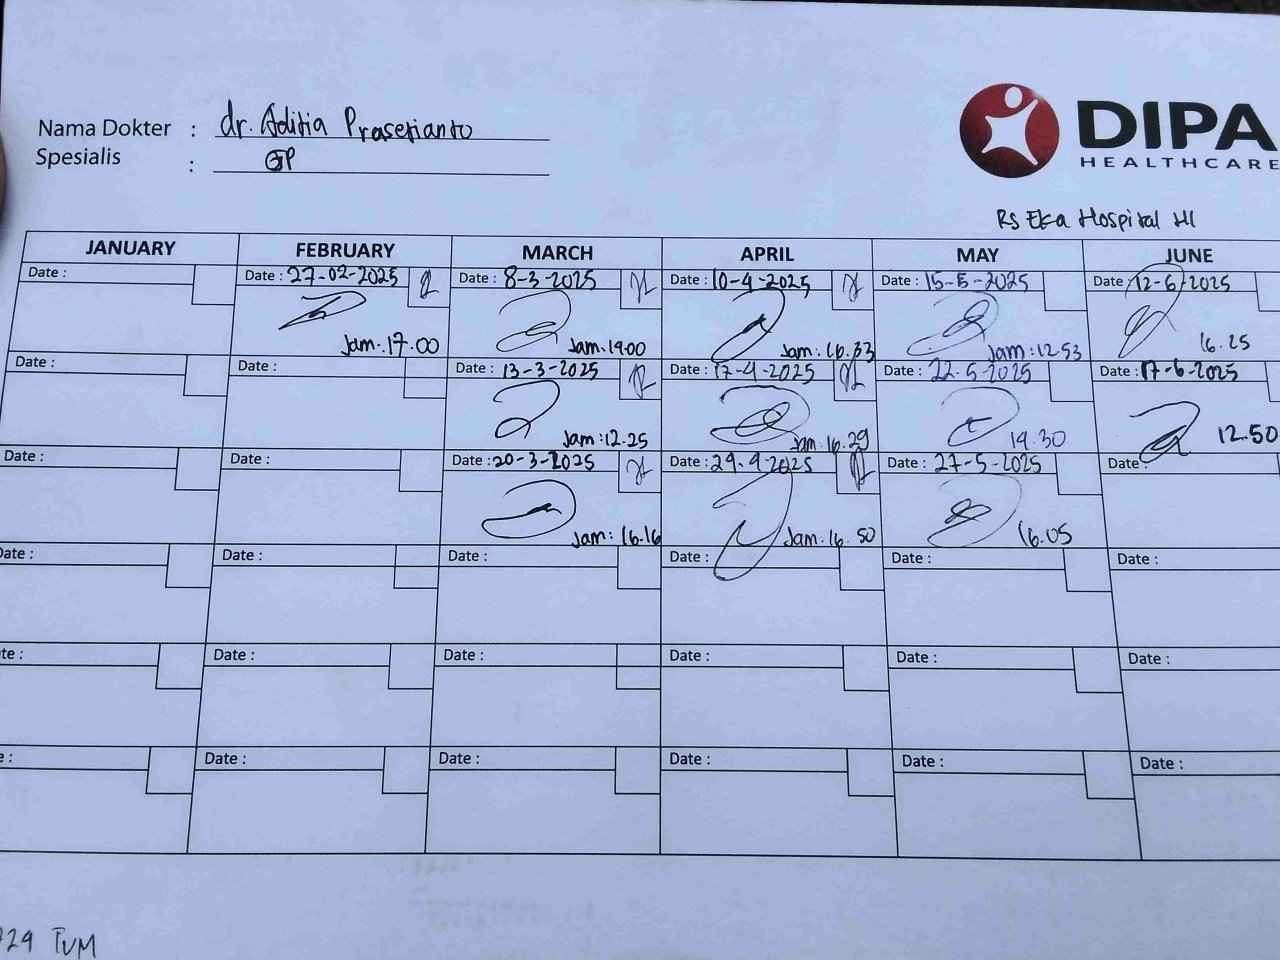 Nama Dokter : dr. Aditia Prasetianto
Spesialis : GP
DIPA
HEALTHCARE
Rs Eka Hospital
JANUARY FEBRUARY MARCH APRIL MAY JUNE
Date : Date : 27-02-2025 Date : 8-3-2025 Date : 10-4-2025 Date : 15-5-2025 Date : 12-6-2025
Jam. 17.00 Jam. 19.00 Jam : 16.33 Jam : 12.53 16.25
Date : Date : Date : 13-3-2025 Date : 17-4-2025 Date : 22-5-2025 Date : 17-6-2025
Jam : 12.25 Jam 16.29 19.30 12.50
Date : Date : Date : 20-3-2025 Date : 29-4-2025 Date : 27-5-2025 Date :
Jam : 16.16 Jam. 16.50 16.05
Date : Date : Date : Date : Date : Date :
te : Date : Date : Date : Date : Date :
: Date : Date : Date : Date : Date :
29 TVM